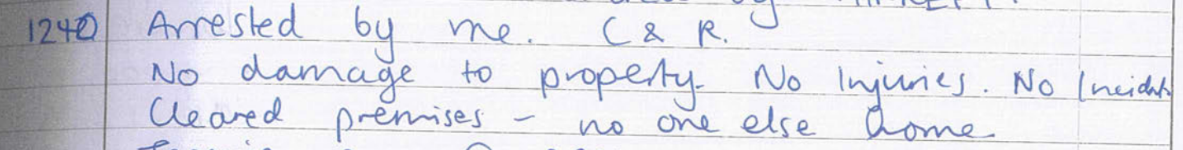 1240 Arrested by me. C & R.
No damage to property. No Injuries. No Incidents
Cleared premises - no one else home